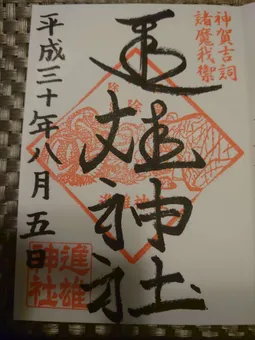 神賀吉詞
諸魔我禦
進雄神社
平成三十年八月五日
進雄
神社